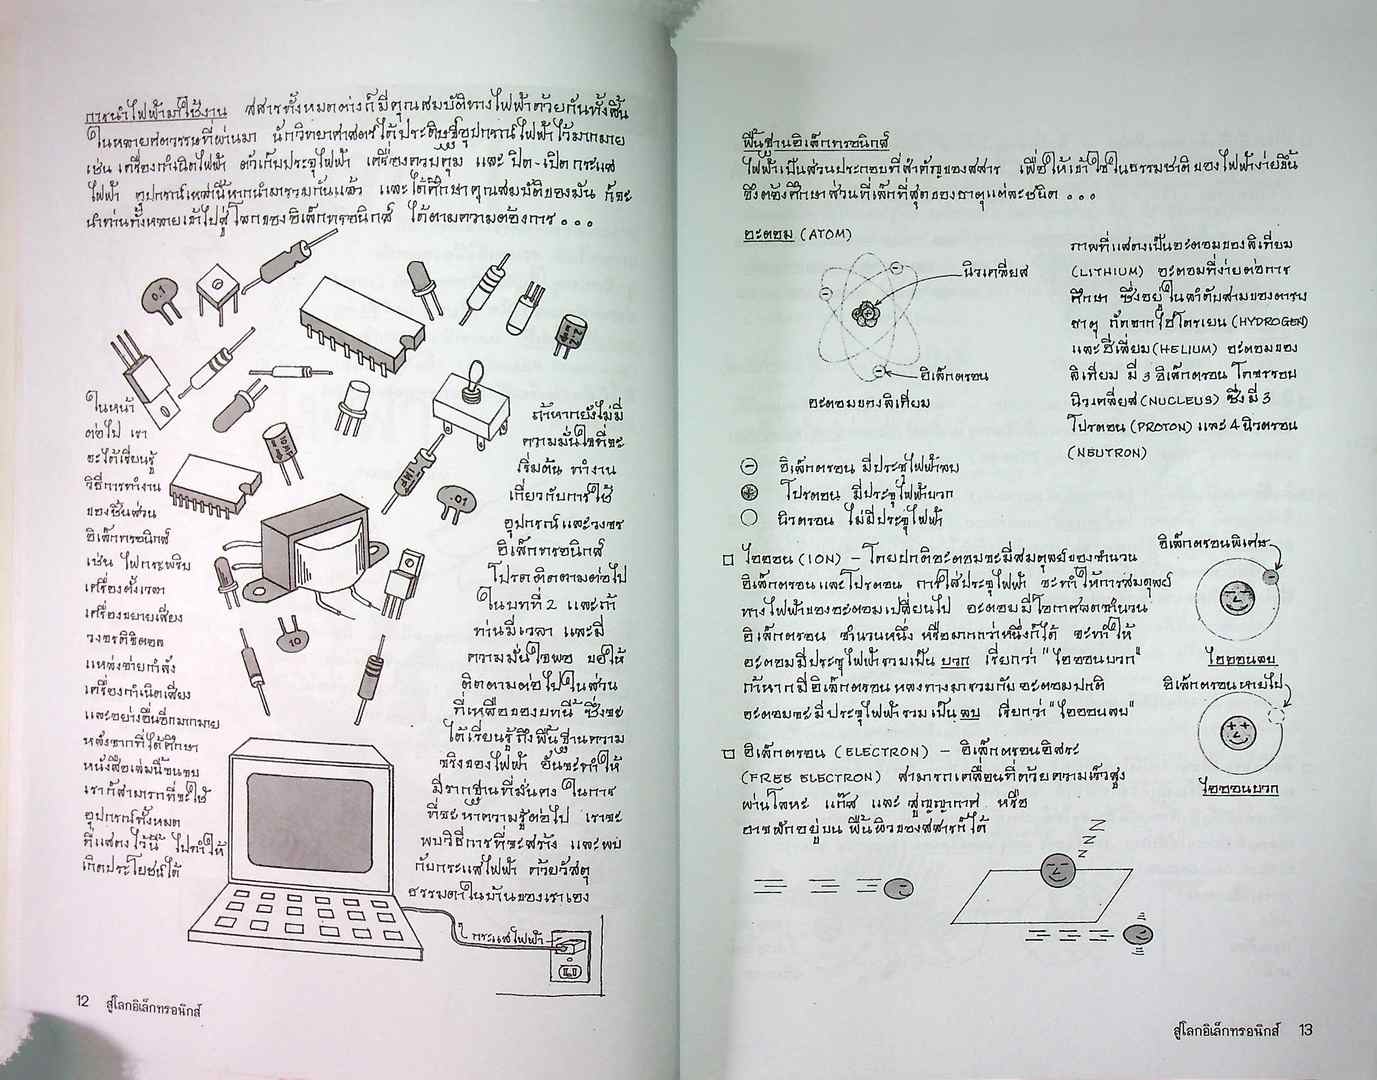 การนำไฟฟ้ามาใช้งาน สสารทั้งหมดต่างก็มีคุณสมบัติทางไฟฟ้าด้วยกันทั้งสิ้น
ในหลายศตวรรษที่ผ่านมา นักวิทยาศาสตร์ได้ประดิษฐ์อุปกรณ์ไฟฟ้าไว้มากมาย
เช่น เครื่องกำเนิดไฟฟ้า ตัวเก็บประจุไฟฟ้า เครื่องควบคุม และ ปิด-เปิด กระแส
ไฟฟ้า อุปกรณ์เหล่านี้หากนำมารวมกันแล้ว และได้ศึกษาคุณสมบัติของมัน ก็จะ
นำท่านทั้งหลายเข้าไปสู่โลกของอิเล็กทรอนิกส์ ได้ตามความต้องการ...
0.1
ในหน้า
ต่อไป เรา
จะได้เรียนรู้
วิธีการทำงาน
ของชิ้นส่วน
อิเล็กทรอนิกส์
เช่น ไฟกระพริบ
เครื่องตั้งเวลา
เครื่องขยายเสียง
วงจรดิจิตอล
แหล่งจ่ายกำลัง
เครื่องกำเนิดเสียง
และอย่างอื่นอีกมากมาย
หลังจากที่ได้ศึกษา
หนังสือเล่มนี้จนจบ
เราก็สามารถที่จะใช้
อุปกรณ์ทั้งหมด
ที่แสดงไว้นี้ ไปทำให้
เกิดประโยชน์ได้
.01
10
ถ้าหากยังไม่มี
ความมั่นใจที่จะ
เริ่มต้น ทำงาน
เกี่ยวกับการใช้
อุปกรณ์และวงจร
อิเล็กทรอนิกส์
โปรดติดตามต่อไป
ในบทที่ 2 และถ้า
ท่านมีเวลา และมี
ความมั่นใจพอ ขอให้
ติดตามต่อไปในส่วน
ที่เหลือของบทนี้ ซึ่งจะ
ได้เรียนรู้ถึงพื้นฐานความ
จริงของไฟฟ้า อันจะทำให้
มีรากฐานที่มั่นคง ในการ
ที่จะหาความรู้ต่อไป เราจะ
พบวิธีการที่จะสร้าง และพบ
กับกระแสไฟฟ้า ด้วยวัสดุ
ธรรมดาในบ้านของเราเอง
กระแสไฟฟ้า
12 สู่โลกอิเล็กทรอนิกส์
พื้นฐานอิเล็กทรอนิกส์
ไฟฟ้าเป็นส่วนประกอบที่สำคัญของสสาร เพื่อให้เข้าใจในธรรมชาติของไฟฟ้าง่ายขึ้น
จึงต้องศึกษาส่วนที่เล็กที่สุดของธาตุแต่ละชนิด...
อะตอม (ATOM)
นิวเคลียส
อิเล็กตรอน
อะตอมของลิเทียม
ภาพที่แสดงเป็นอะตอมของลิเทียม
(LITHIUM) อะตอมที่ง่ายต่อการ
ศึกษา ซึ่งอยู่ในลำดับสามของตาราง
ธาตุ ถัดจากไฮโดรเยน (HYDROGEN)
และฮีเลียม (HELIUM) อะตอมของ
ลิเทียม มี 3 อิเล็กตรอน โคจรรอบ
นิวเคลียส (NUCLEUS) ซึ่งมี 3
โปรตอน (PROTON) และ 4 นิวตรอน
(NEUTRON)
อิเล็กตรอน มีประจุไฟฟ้าลบ
โปรตอน มีประจุไฟฟ้าบวก
นิวตรอน ไม่มีประจุไฟฟ้า
ไอออน (ION) – โดยปกติอะตอมจะมีสมดุลย์ของจำนวน
อิเล็กตรอนและโปรตอน การใส่ประจุไฟฟ้า จะทำให้การสมดุลย์
ทางไฟฟ้าของอะตอมเปลี่ยนไป อะตอมมีโอกาสลดจำนวน
อิเล็กตรอน จำนวนหนึ่ง หรือมากกว่าหนึ่งก็ได้ จะทำให้
อะตอมมีประจุไฟฟ้ารวมเป็น บวก เรียกว่า "ไอออนบวก"
ถ้าหากมีอิเล็กตรอนหลงทางมารวมกับอะตอมปกติ
อะตอมจะมีประจุไฟฟ้ารวมเป็น ลบ เรียกว่า "ไอออนลบ"
อิเล็กตรอนพิเศษ
ไอออนลบ
อิเล็กตรอนหายไป
ไอออนบวก
อิเล็กตรอน (ELECTRON) – อิเล็กตรอนอิสระ
(FREE ELECTRON) สามารถเคลื่อนที่ด้วยความเร็วสูง
ผ่านโลหะ แก๊ส และ สูญญากาศ หรือ
อาจพักอยู่บน พื้นผิวของสสารก็ได้
Z Z Z Z
สู่โลกอิเล็กทรอนิกส์ 13